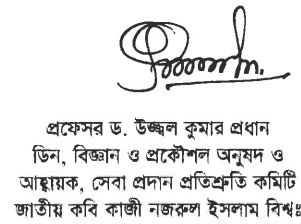 প্রফেসর ড. উজ্জ্বল কুমার প্রধান
ডিন, বিজ্ঞান ও প্রকৌশল অনুষদ ও
আহ্বায়ক, সেবা প্রদান প্রতিশ্রুতি কমিটি
জাতীয় কবি কাজী নজরুল ইসলাম বিশ্ব